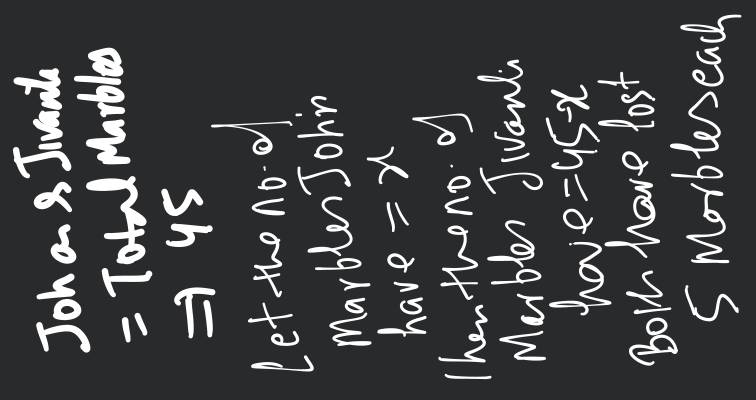 John & Jivanti
= Total Marbles
⇒ 45
Let the no. of
Marbles John
have = x
Then the no. of
Marbles Jivanti
have = 45-x
Both have lost
5 Marbles each